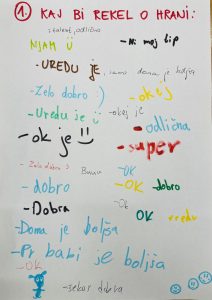 1. KAJ BI REKEL O HRANI:
odlična
NJAM Ü
- Ni moj tip
- UREDU je, doma je boljša
- Zelo dobro :)
- okej
- Uredu je ü
- okej je
- ok je
- odlična
- super
- Zelo dobra :)
- OK
- dobro
- OK - dobro
- Dobra
- Ok
OK uredu
- Doma je boljša
- Pr babi je boljša
- OK
- dobra